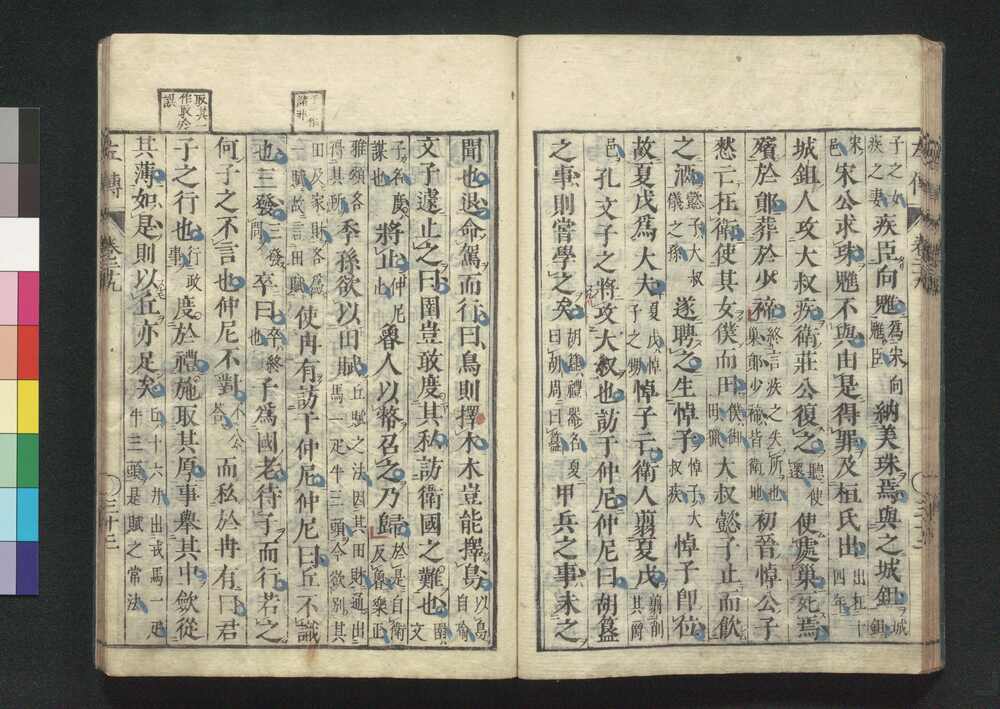 子之女疾之妻疾臣向魋為宋向魋臣納美珠焉與之城鉏城鉏
宋邑宋公求珠魋不與由是得罪及桓氏出出在十四年
城鉏人攻大叔疾衛莊公復之聽使還使處巢死焉
殯於鄖葬於少禘終言疾之失所也巢鄖少禘皆衛地初晉悼公子
憖亡在衛使其女僕而田僕御田獵大叔懿子止而飲
之酒懿子大叔儀之孫遂聘之生悼子悼子大叔疾悼子即位
故夏戊爲大夫夏戊悼子之甥悼子亡衛人翦夏戊翦削其爵
邑孔文子之將攻大叔也訪于仲尼仲尼曰胡簋
之事則嘗學之矣胡簋禮器名夏曰胡周曰簋甲兵之事未之
聞也退命駕而行曰鳥則擇木木豈能擇鳥以鳥自喻
文子遽止之曰圉豈敢度其私訪衛國之難也圉文
子名度謀也將止仲尼止魯人以幣召之乃歸於是自衛反魯樂正
雅頌各得其所季孫欲以田賦丘賦之法因其田財通出馬一疋牛三頭今欲別其
田及家財各爲一賦故言田賦使冉有訪于仲尼仲尼曰丘不識
也三發三發問卒曰卒終也子爲國老待子而行若之
何子之不言也仲尼不對不公答而私於冉有曰君
子之行也行政事度於禮施取其厚事舉其中斂從
其薄如是則以丘亦足矣丘十六井出戎馬一疋牛三頭是賦之常法
取其一作取於誤
左傳
三十二